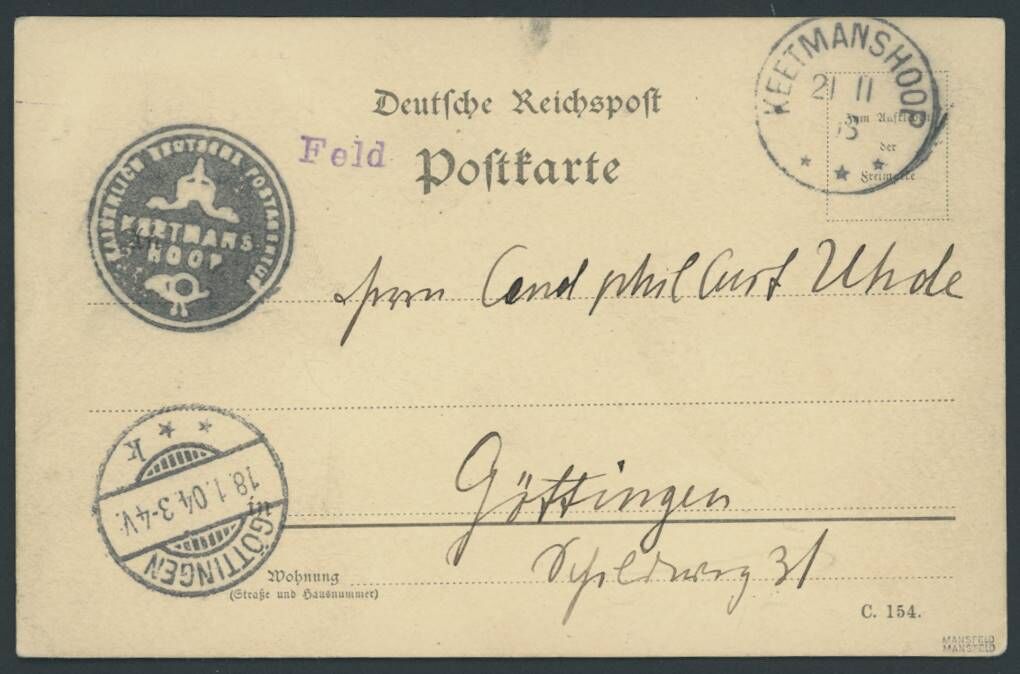 Deutsche Reichspost
Feld
Postkarte
KEETMANSHOOP
21 11
Zum Aufkleben
der
Freimarke
KAISERLICH DEUTSCHE POSTAGENTUR
KEETMANS
HOOP
An
Herrn Cand phil Curt Uhde
in
Göttingen
k
18.1.04.3-4V.
GÖTTINGEN
Schildweg 31
Wohnung
(Straße und Hausnummer)
C. 154.
MANSFELD
MANSFELD